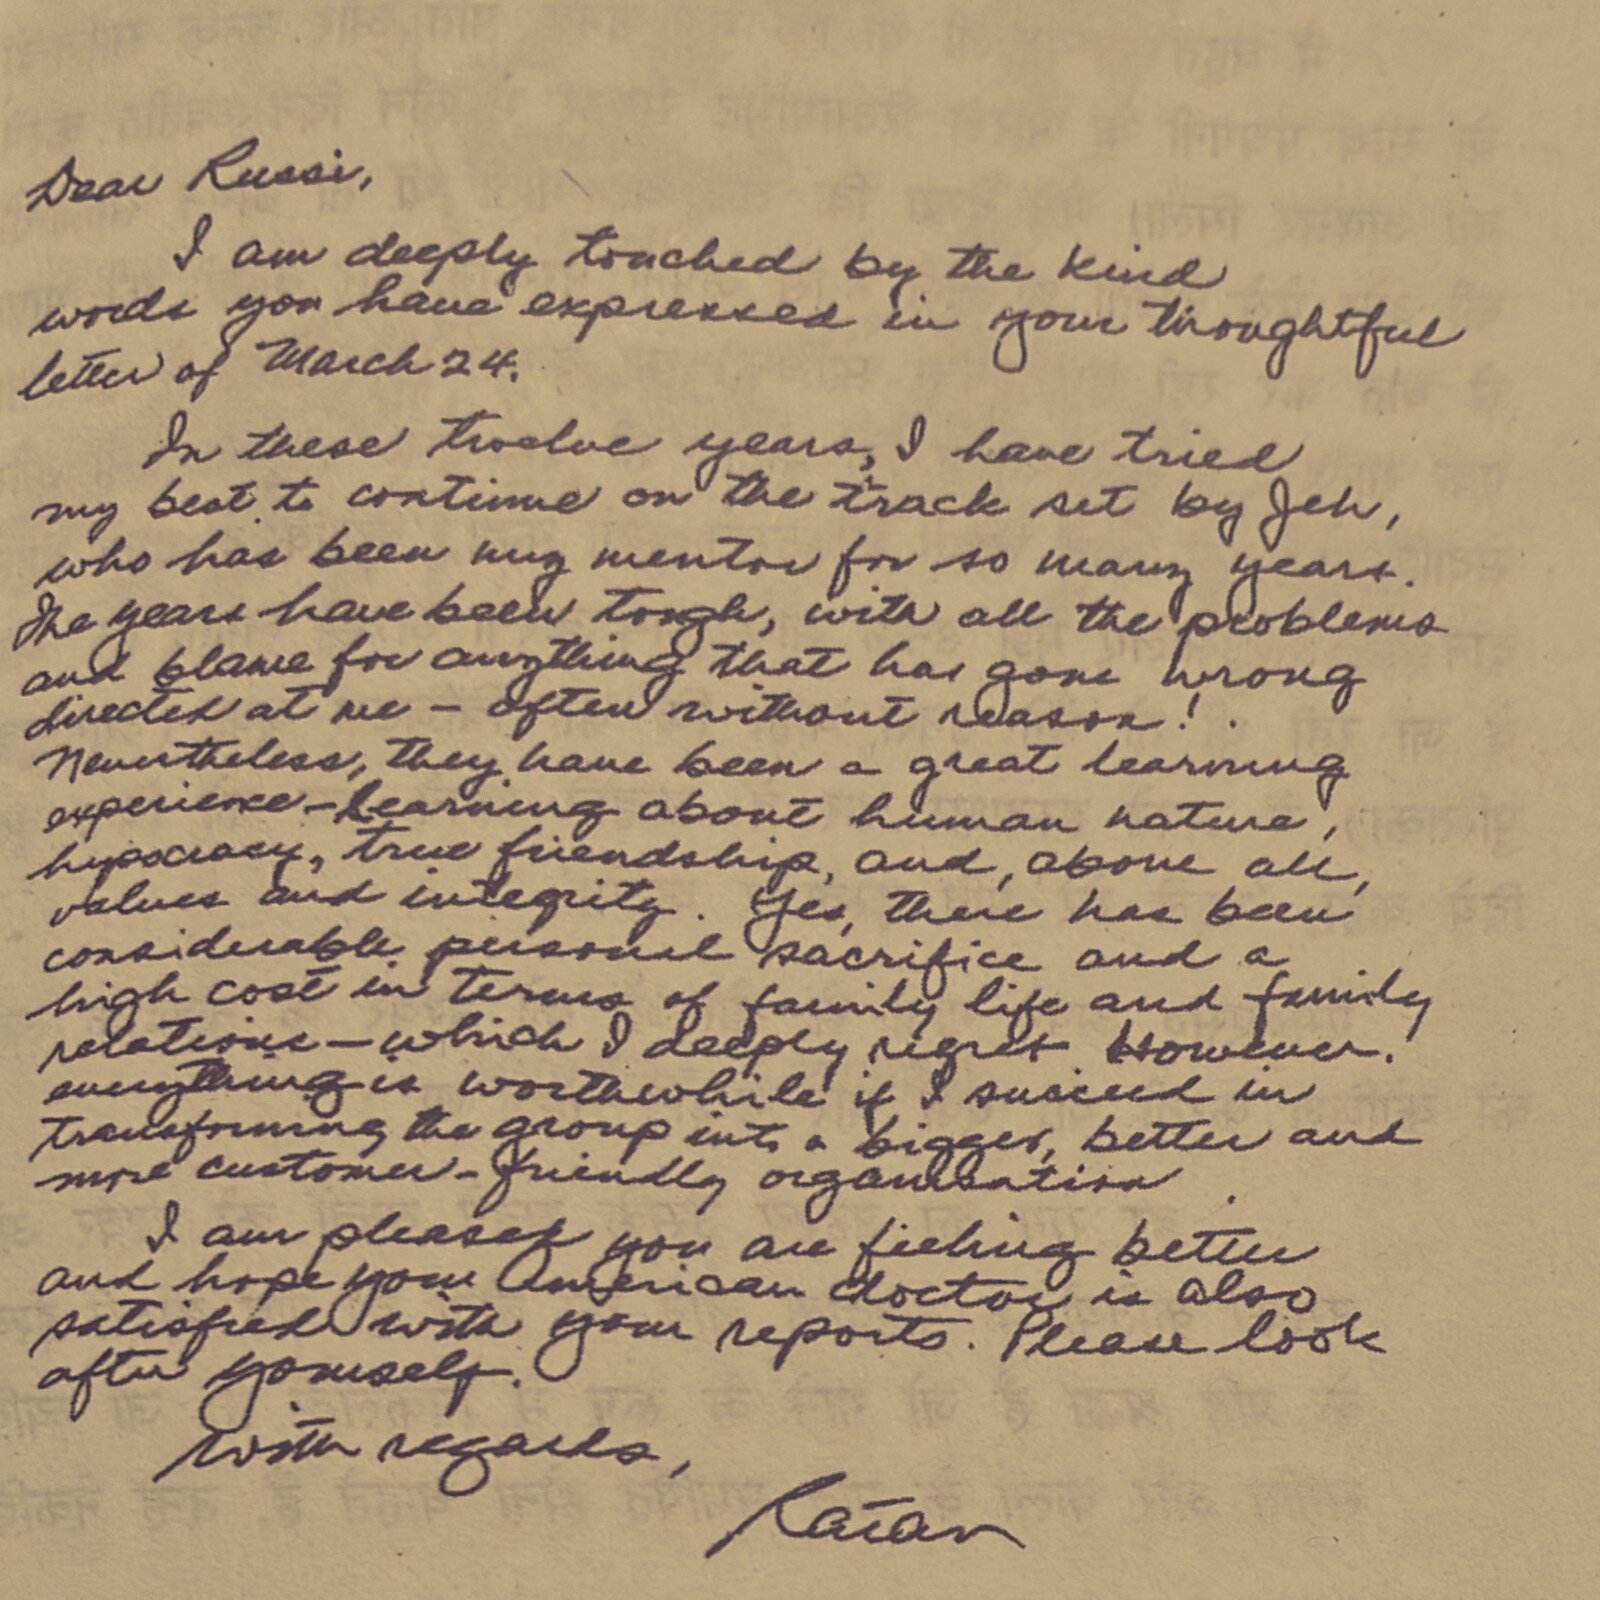 Dear Russi,
I am deeply touched by the kind
words you have expressed in your thoughtful
letter of March 24.
In these twelve years, I have tried
my best to continue on the track set by Jeh,
who has been my mentor for so many years.
The years have been tough, with all the problems
and blame for anything that has gone wrong
directed at me – often without reason!
Nevertheless, they have been a great learning
experience – learning about human nature,
hypocracy, true friendship, and, above all,
values and integrity. Yes, there has been
considerable personal sacrifice and a
high cost in terms of family life and family
relations – which I deeply regret However.
everything is worthwhile if I succeed in
transforming the group into a bigger, better and
more customer-friendly organisation.
I am pleased you are feeling better
and hope your American doctor is also
satisfied with your reports. Please look
after yourself.
With regards,
Ratan